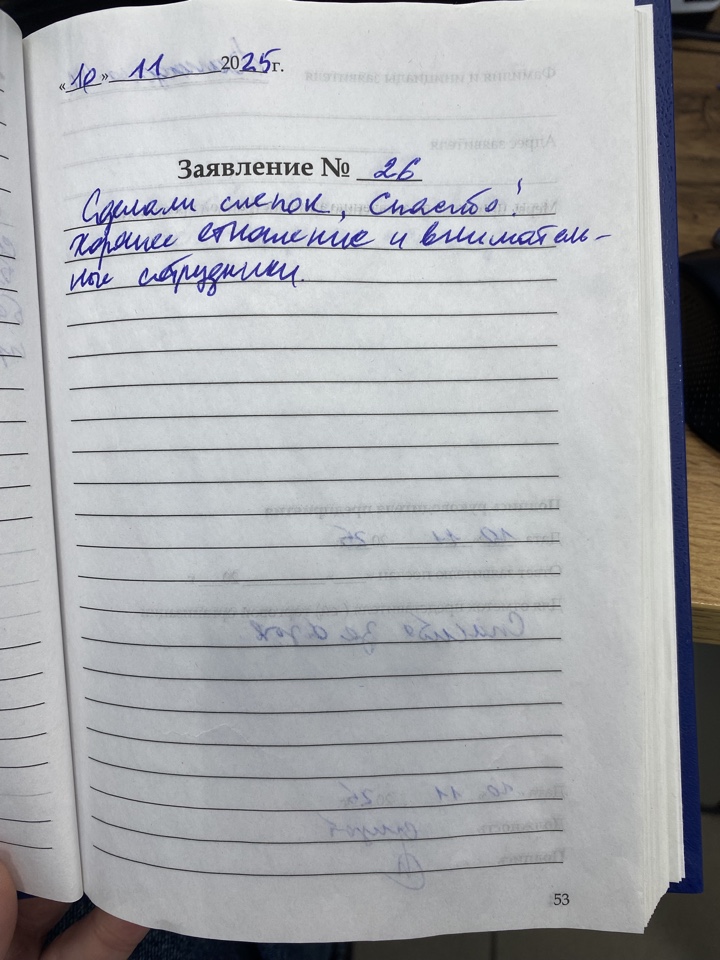 «10» 11 2025г.
Заявление № 26
Сделали слепок, Спасибо!
хорошее отношение и вниматель-
ные сотрудники.
53